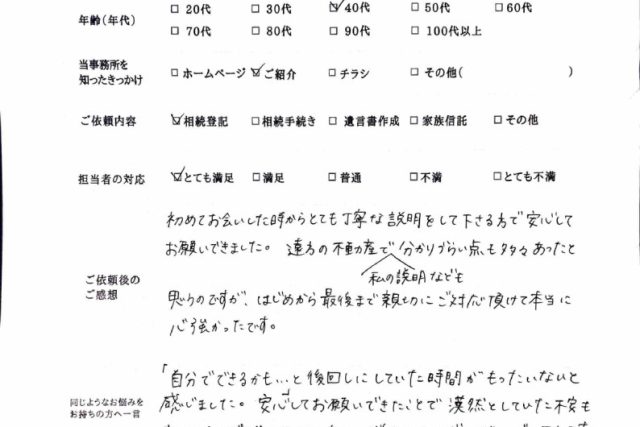 年齢(年代) □ 20代 □ 30代 ☑ 40代 □ 50代 □ 60代
□ 70代 □ 80代 □ 90代 □ 100代以上
当事務所を
知ったきっかけ □ ホームページ ☑ ご紹介 □ チラシ □ その他( )
ご依頼内容 ☑ 相続登記 □ 相続手続き □ 遺言書作成 □ 家族信託 □ その他
担当者の対応 ☑ とても満足 □ 満足 □ 普通 □ 不満 □ とても不満
ご依頼後の
ご感想
初めてお会いした時からとても丁寧な説明をして下さる方で安心して
お願いできました。遠方の不動産で分かりづらい点も多々あったと
私の説明なども
思うのですが、はじめから最後まで親切にご対応頂けて本当に
心強かったです。
同じようなお悩みを
お持ちの方へ一言
「自分でできるかも…と後回しにしていた時間がもったいないと
感じました。安心してお願いできたことで漠然としていた不安も